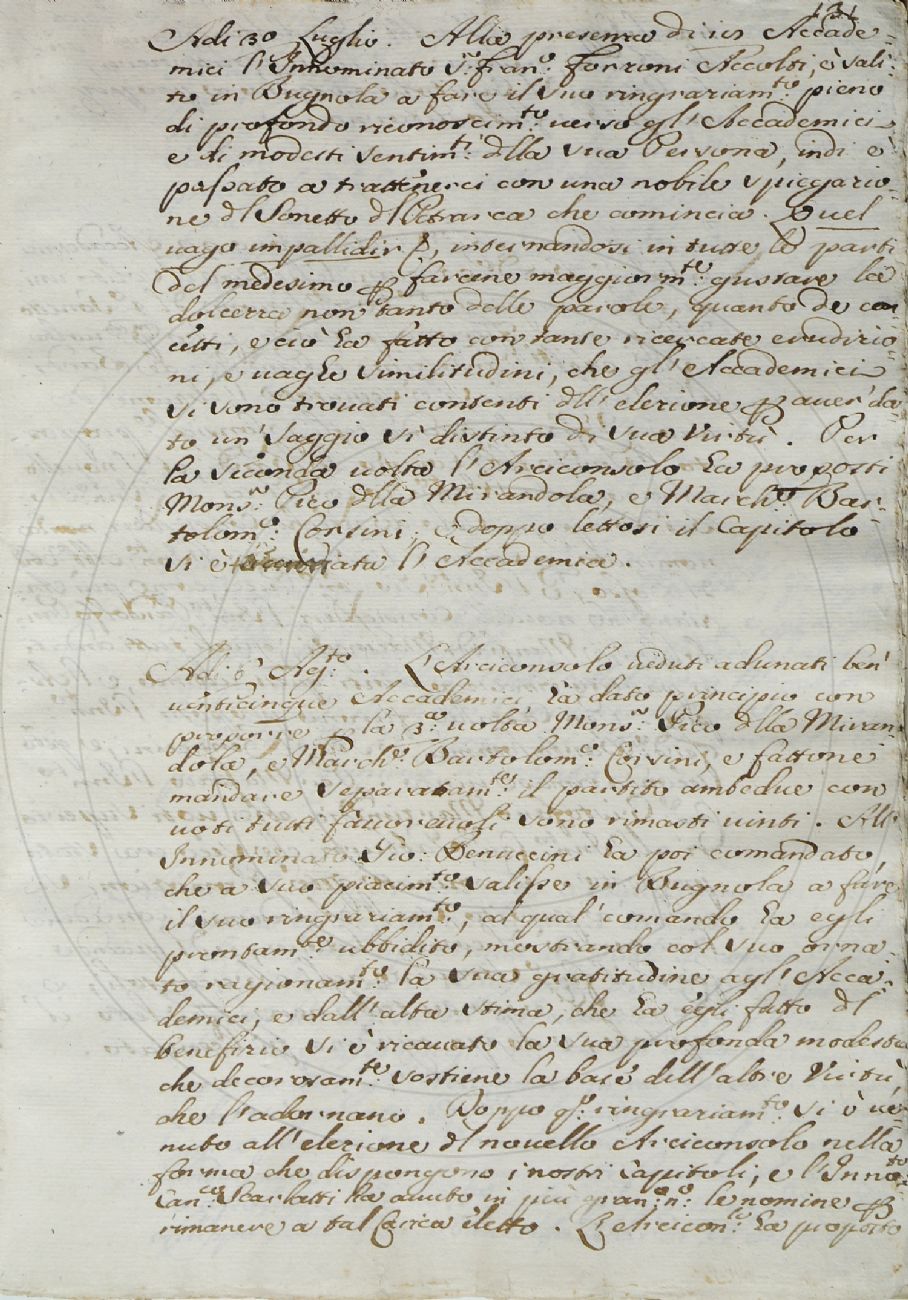 131
Adi 30 Luglio. Alla presenza di Accade-
mici l'Innominato S.r Fran.o Forzoni Accolti, è sali-
to in Bugnola a fare il suo ringraziam.to pieno
di profondo riconoscim.to verso gl'Accademici
e di modesti sentim.ti dlla sua Persona, indi è
passato a trattenerci con una nobile spiegazio-
ne dl Sonetto dl Petrarca che comincia. Quel
vago impallidir, internandosi in tutte le parti
del medesimo p farcene maggiorm.te gustare la
dolcezza non tanto delle parole, quanto de con
cetti, e ciò ha fatto con tante ricercate erudizio-
ni, e vaghe similitudini, che gl'Accademici
si sono trovati contenti dll'elezione p aver da
to un' saggio sì distinto di sua Virtù. Per
la seconda volta l'Arciconsolo ha proposti
Mons.r Pico dlla Mirandola, e March.e Bar-
tolom.o Corsini, e doppo lettosi il Capitolo
si è licenziata l'Accademia.
Adi 6 Ag.to. L'Arciconsolo veduti adunati ben'
venticinque Accademici ha dato principio con
proporre p la 3.a volta Mons.r Pico dlla Miran
dola, e March.e Bartolom.o Corsini, e fattone
mandare separatam.te il partito ambedue con
voti tutti favorevoli sono rimasti vinti. All'
Innominato Gio: Benuccini ha poi comandato,
che a suo piacim.to salisse in Bugnola a fare
il suo ringraziam.to, al qual' comando ha egli
prontam.te ubbidito, mostrando col suo orna-
to ragionam.to la sua gratitudine agl'Acca-
demici, e dall'alta stima, che ha egli fatto dl
benefizio si è ricavato la sua profonda modestia
che decorosam.te sostiene la base dell'altre Virtù,
che l'adornano. Doppo q.o ringraziam.to si è ve-
nuto all'elezione dl novello Arciconsolo nella
forma che dispongono i nostri Capitoli; e l'Inno.to
Can.co Scarlatti ha avuto in più gran n.o le nomine p
rimanere a tal Carica eletto. L'Arcicon.lo ha proposto